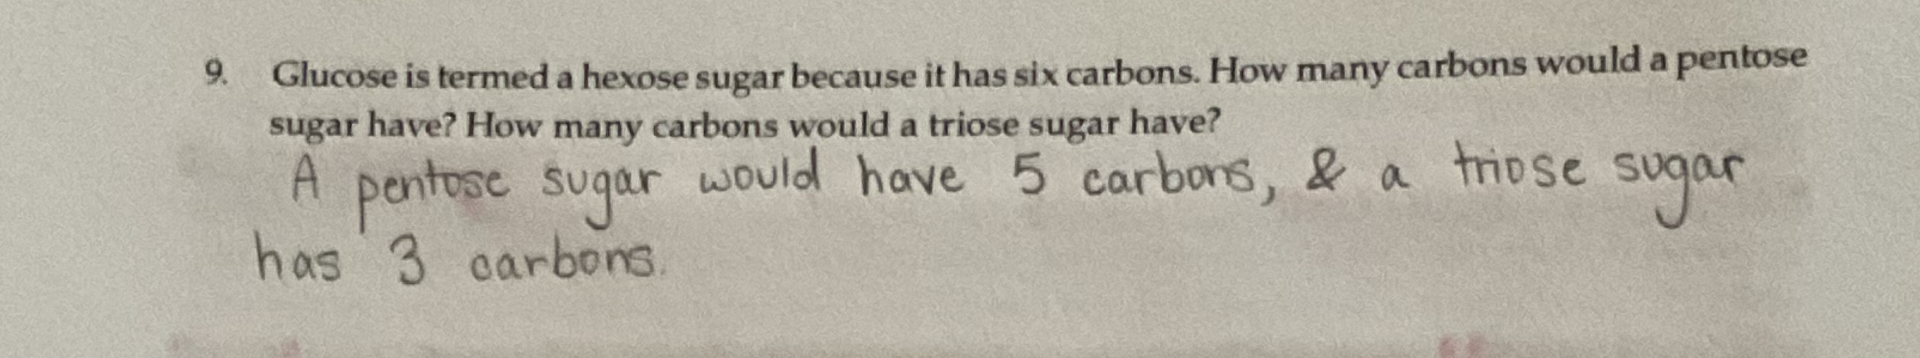 9. Glucose is termed a hexose sugar because it has six carbons. How many carbons would a pentose
sugar have? How many carbons would a triose sugar have?
A pentose sugar would have 5 carbons, & a triose sugar
has 3 carbons.